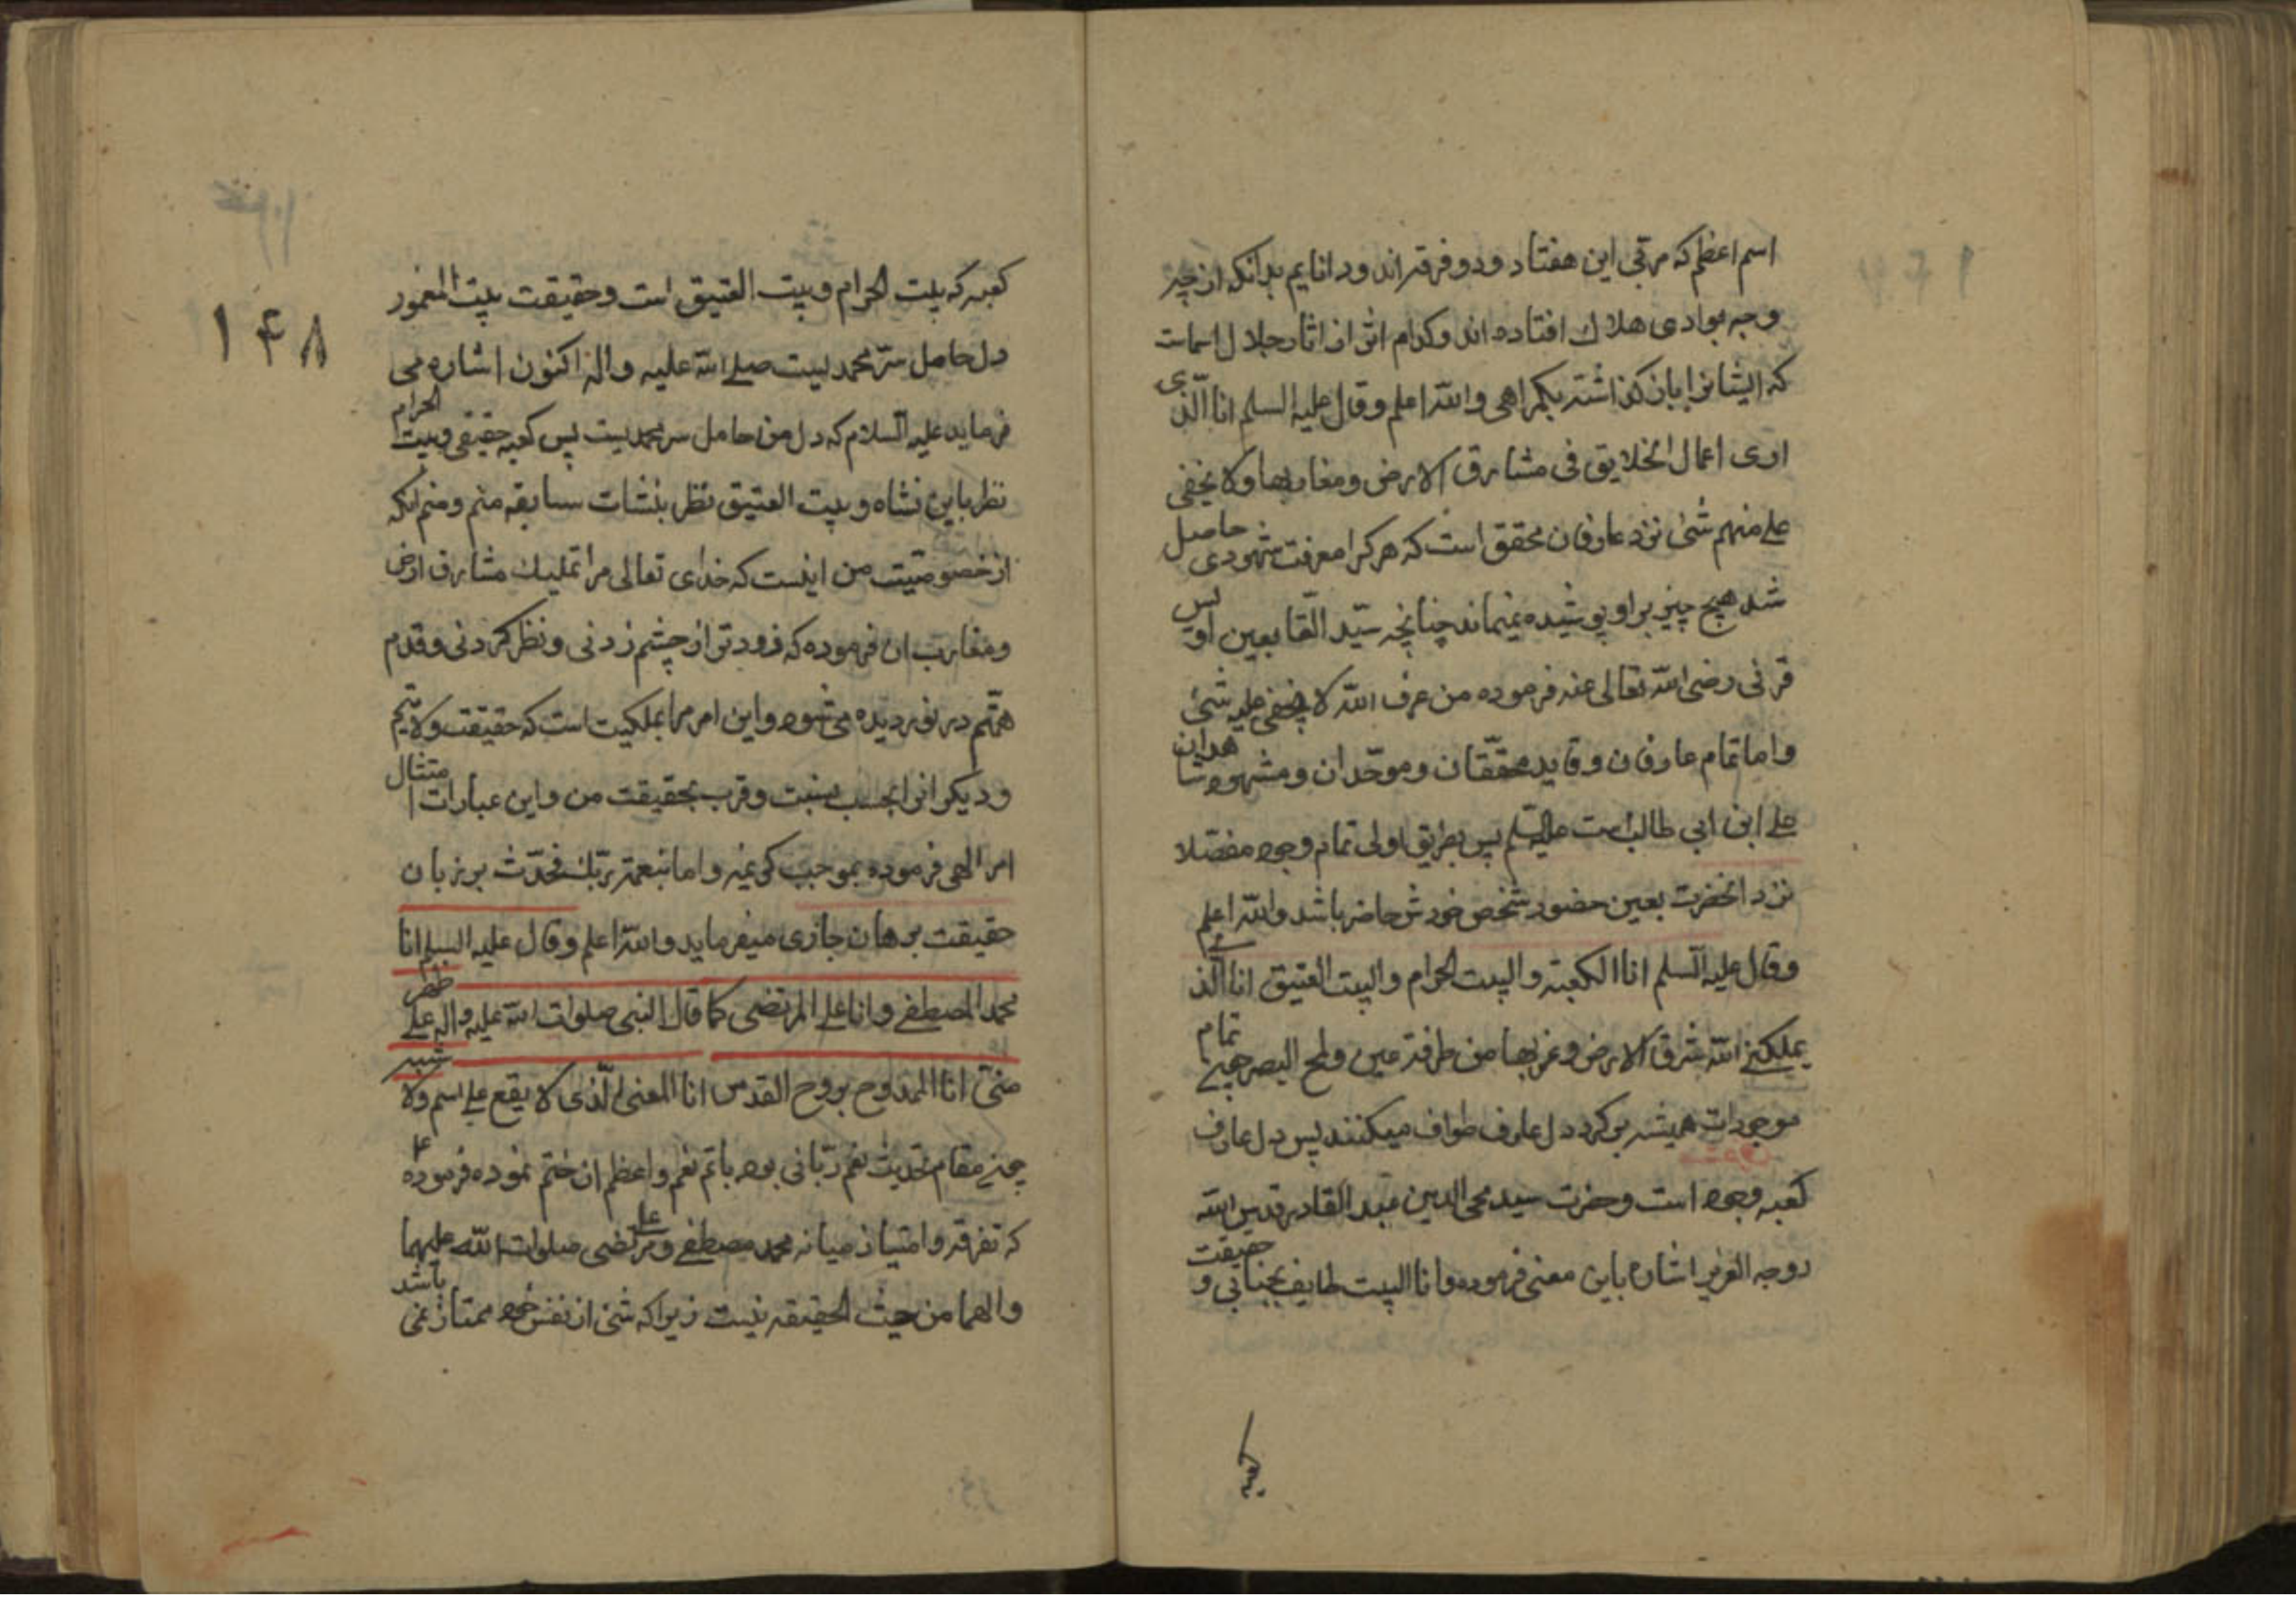 اسم اعظم که مرقی این هفتاد و دو فرقه اند و دانایم بدانکه از چه
وجه بوادی هلاک افتاده اند و کدام اثر از اثار جلال اسماست
که ایشانرا بان گذاشته بگمراهی والله اعلم وقال علیه السلم انا الذی
اری اعمال الخلایق فی مشارق الارض ومغاربها ولا یخفی
علی منهم شیٔ نزد عارفان محقق است که هر کرا معرفت شهودی حاصل
شد هیچ چیز بر او پوشیده نمیماند چنانچه سیّد التّابعین اویس
قرنی رضی الله تعالی عنه فرموده من عرف الله لا یخفی علیه شیٔ
واما تمام عارفان وقاید محقّقان وموحّدان ومشهود شاهدان
علی ابن ابی طالب است علیه السلم پس بطریق اولی تمام وجود مفصّلا
نزد انحضرت بعین حضور شخص خودش حاضر باشد والله اعلم
وقال علیه السلم انا الکعبة والبیت الحرام والبیت العتیق انا الذی
یملکنی الله شرق الارض وغربها من طرفة عین ولمح البصر جمیع تمام
موجودات همیشه بر کرد دل عارف طواف میکنند پس دل عارف
کعبه وجود است وحضرت سید محی الدین عبد القادر قدس الله
روحه العزیز اشاره باین معنی فرموده وانا البیت طایف بجنابی و حقیقت
کعبه
۱۴۸
کعبه که بیت الحرام وبیت العتیق است وحقیقت بیت المعمور
دل حامل سرّ محمدیست صلی الله علیه واله اکنون اشاره می
فرماید علیه السلام که دل من حامل سر محمدیست پس کعبه حقیقی وبیت الحرام
نظر باین نشاه وبیت العتیق نظر بنشات سابقه منم ومنم انکه
از خصوصیّت من اینست که خدای تعالی مرا تملیك مشارق ارض
ومغارب ان فرموده که زودتر از چشم زدنی ونظر کردنی وقدم
همّتم در نور دیده می شود واین امر مرا بملکیت است که حقیقت ولایتم
ودیکرانرا بحسب نسبت وقرب بحقیقت من واین عبارات امتثال
امر الهی فرموده بموجب کریمه واما بنعمة ربّك فحدّث بر زبان
حقیقت برهان جاری میفرماید والله اعلم وقال علیه السلم انا
محمد المصطفی وانا علی المرتضی کما قال النبی صلوات الله علیه واله علی ظهر
منّی انا الممدوح بروح القدس انا المعنی الّذی لا یقع علی اسم ولا شبه
چون مقام تحدیث نعم ربّانی بود باتم نعم واعظم ان ختم نموده فرموده
که تفرقه وامتیاز میانه محمد مصطفی و علی مرتضی صلوات الله علیهما
والهما من حیث الحقیقه نیست زیرا که شئ از نفس خود ممتاز نمی باشد